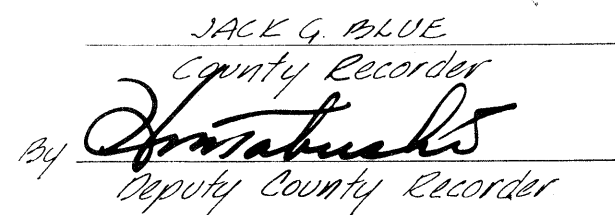 JACK G. BLUE
County Recorder
By
Deputy County Recorder